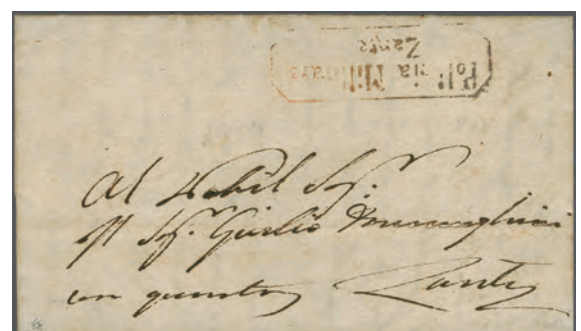 Polizia Militare
Zante
Al Nobil Sigr.
Il Sigr. Giulio
con quinto Zante